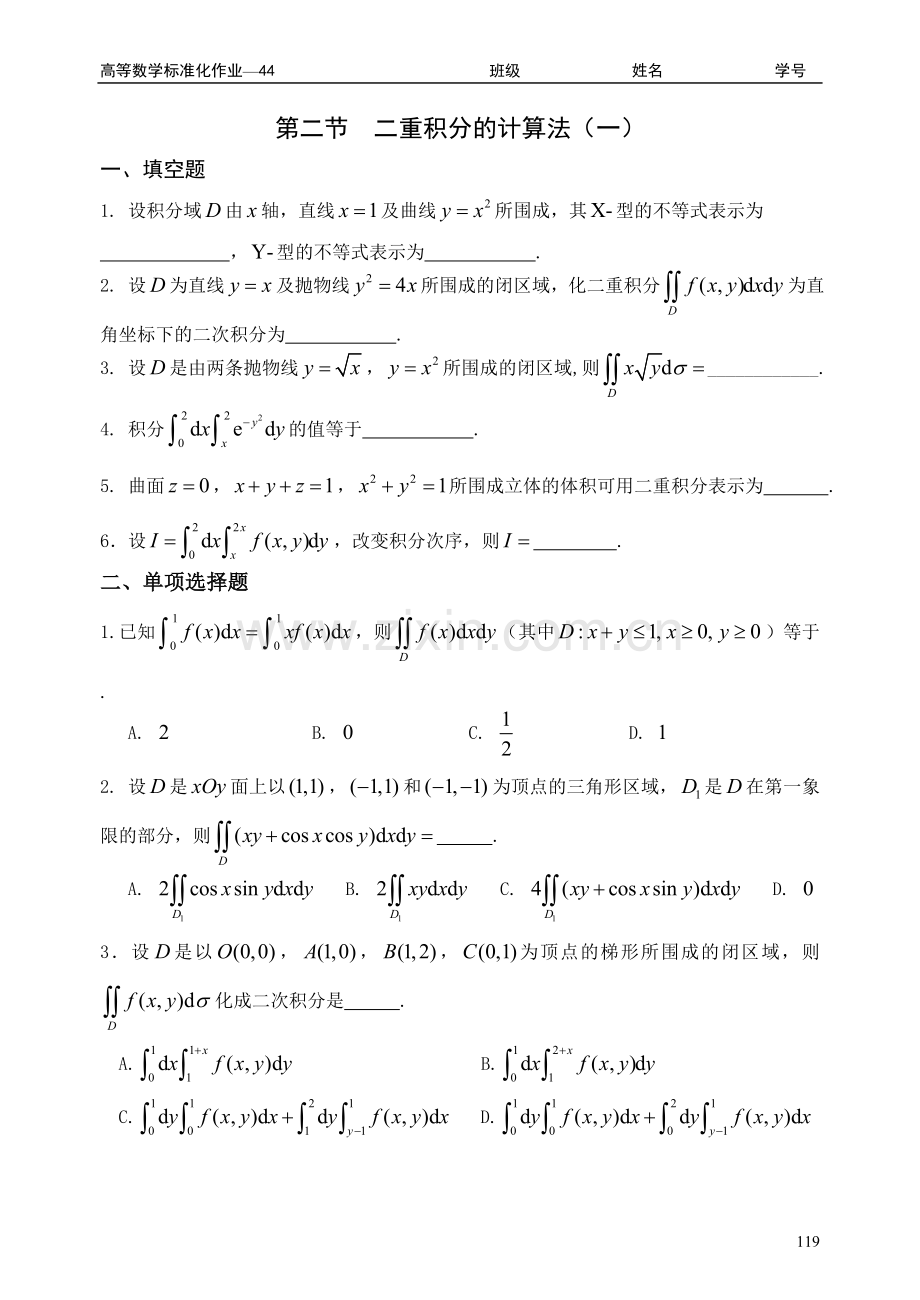 高等数学标准化作业—44 班级 姓名 学号
第二节 二重积分的计算法（一）
一、填空题
1. 设积分域D由x轴，直线x=1及曲线y=x²所围成，其X-型的不等式表示为
____________，Y-型的不等式表示为____________.
2. 设D为直线y=x及抛物线y²=4x所围成的闭区域，化二重积分∬_D f(x,y)dxdy为直
角坐标下的二次积分为____________.
3. 设D是由两条抛物线y=√x，y=x²所围成的闭区域,则∬_D x√y dσ=____________.
4. 积分∫_0^2 dx∫_x^2 e^{-y²}dy的值等于____________.
5. 曲面z=0，x+y+z=1，x²+y²=1所围成立体的体积可用二重积分表示为_______.
6．设I=∫_0^2 dx∫_x^{2x} f(x,y)dy，改变积分次序，则I=_________.
二、单项选择题
1.已知∫_0^1 f(x)dx=∫_0^1 xf(x)dx，则∬_D f(x)dxdy（其中D:x+y≤1,x≥0,y≥0）等于
.
A. 2 B. 0 C. 1/2 D. 1
2. 设D是xOy面上以(1,1)，(−1,1)和(−1,−1)为顶点的三角形区域，D₁是D在第一象
限的部分，则∬_D (xy+cos x cos y)dxdy=______.
A. 2∬_{D₁} cos x sin ydxdy B. 2∬_{D₁} xydxdy C. 4∬_{D₁} (xy+cos x sin y)dxdy D. 0
3．设D是以O(0,0)，A(1,0)，B(1,2)，C(0,1)为顶点的梯形所围成的闭区域，则
∬_D f(x,y)dσ化成二次积分是______.
A.∫_0^1 dx∫_1^{1+x} f(x,y)dy B.∫_0^1 dx∫_1^{2+x} f(x,y)dy
C.∫_0^1 dy∫_0^1 f(x,y)dx+∫_1^2 dy∫_{y−1}^1 f(x,y)dx D.∫_0^1 dy∫_0^1 f(x,y)dx+∫_0^2 dy∫_{y−1}^1 f(x,y)dx
www.zixin.com.cn
119